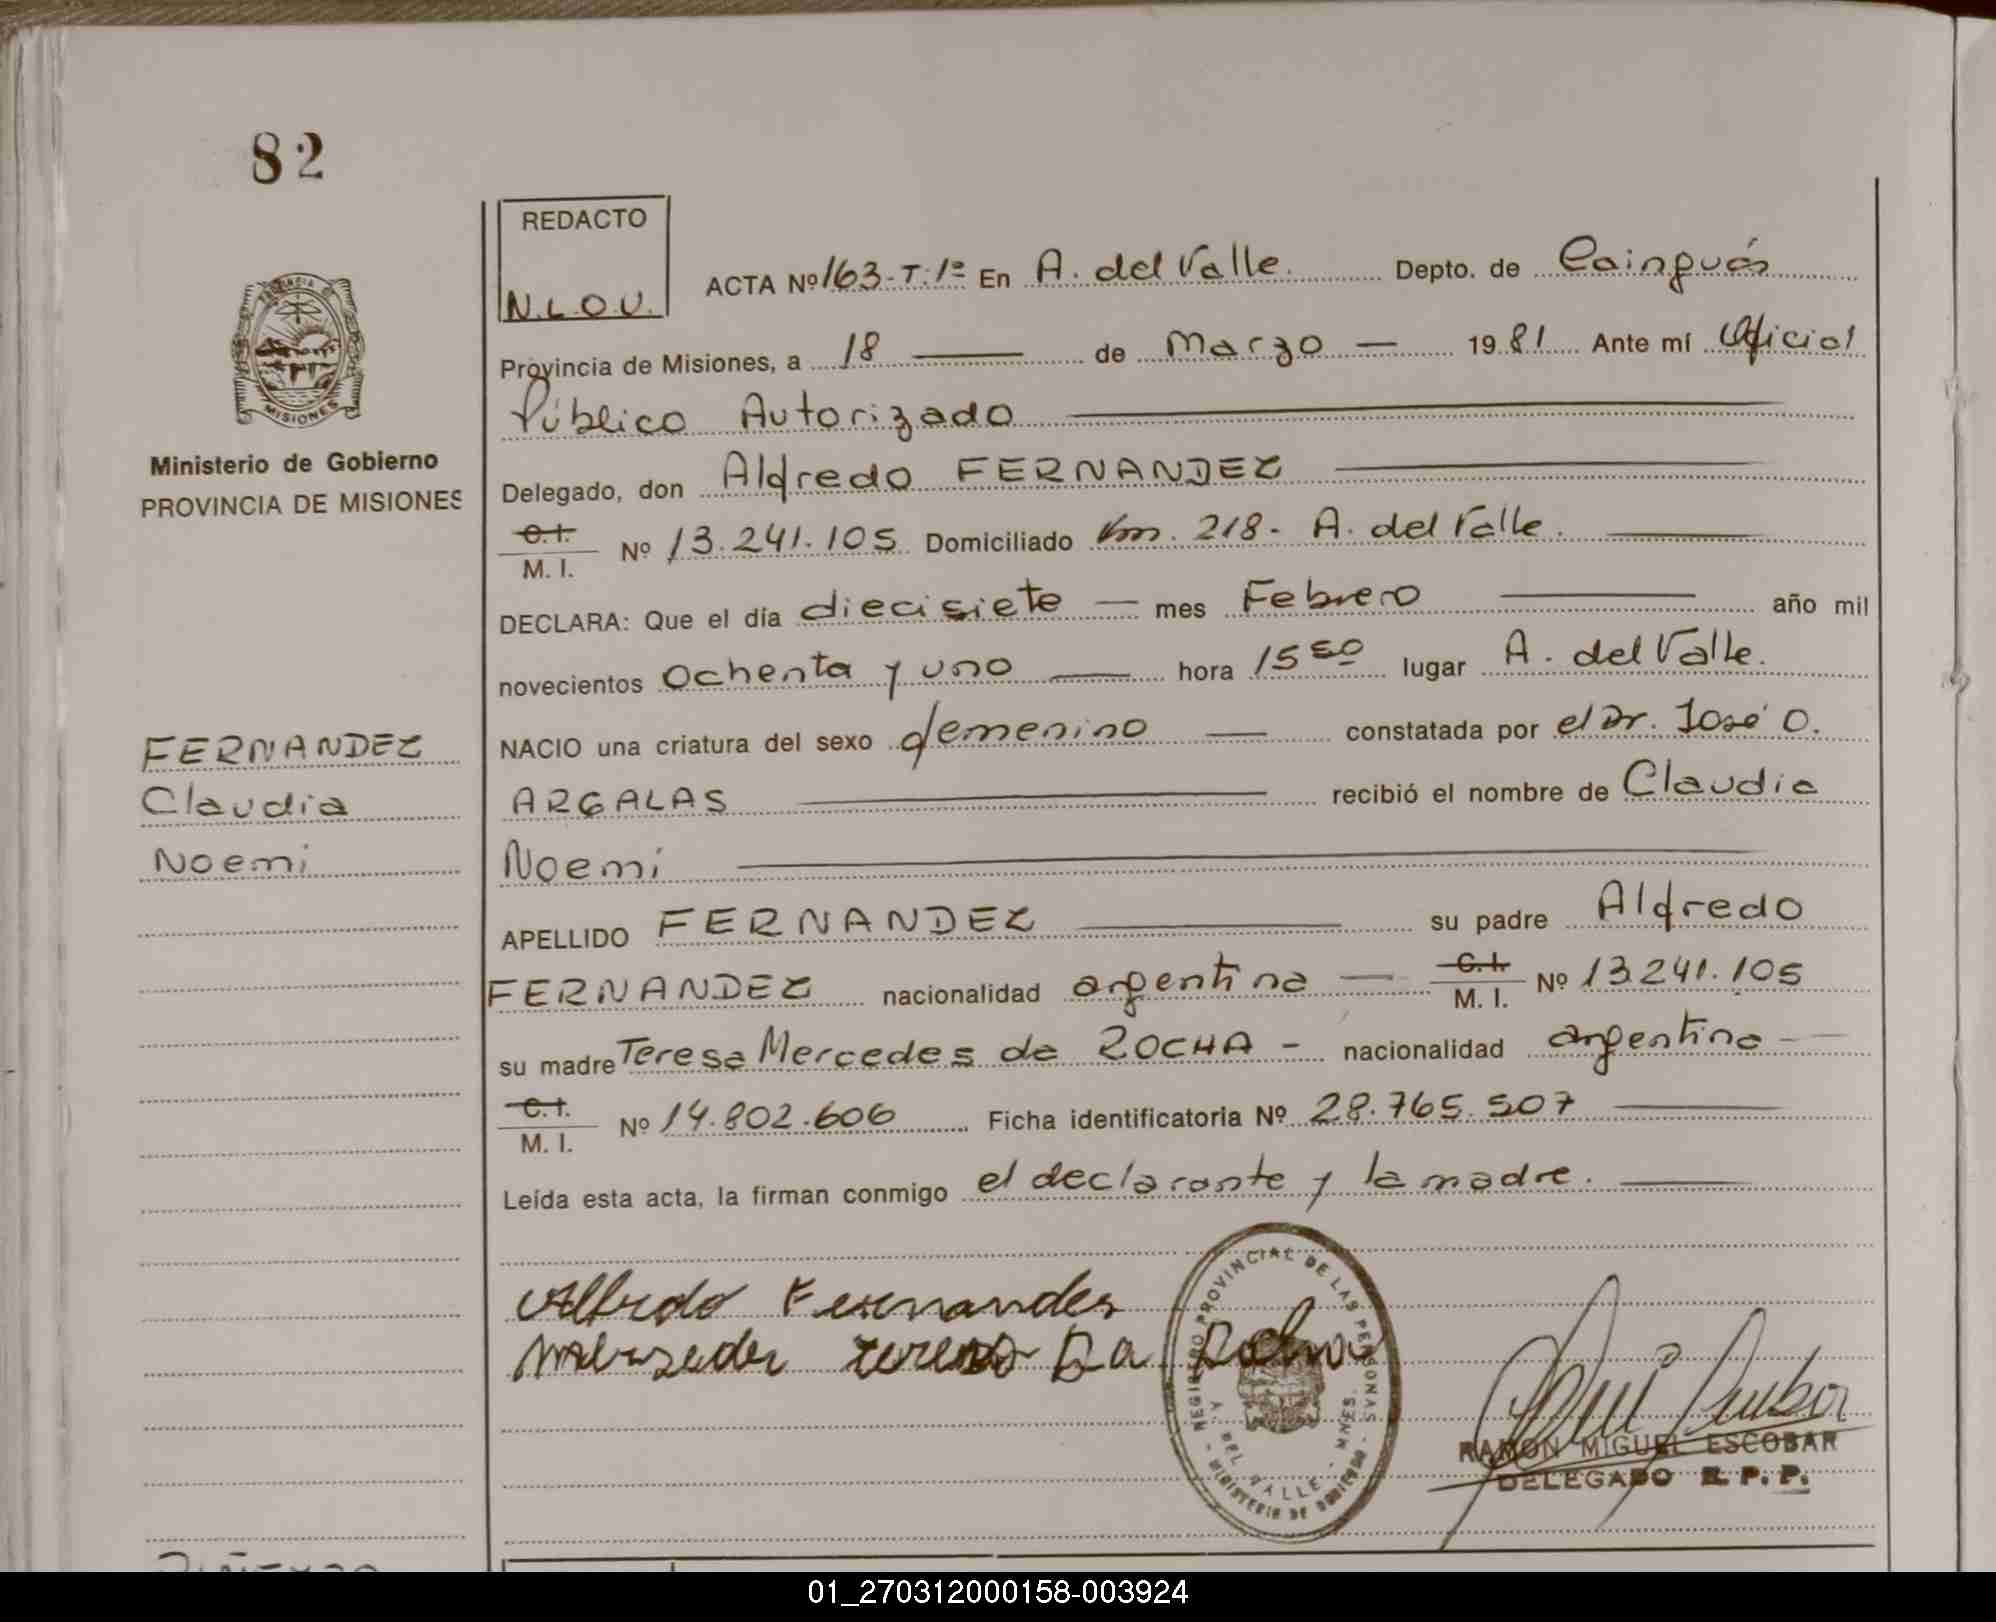 82
REDACTO
N.L.O.V.
ACTA Nº 163-T:1º En A. del Valle. Depto. de Cainguás
Provincia de Misiones, a 18 — de Marzo — 1981 Ante mí Oficial
Público Autorizado
Delegado, don Alfredo FERNANDEZ
C.I.
M. I. Nº 13.241.105 Domiciliado Km. 218- A. del Valle.
DECLARA: Que el día diecisiete — mes Febrero — año mil
novecientos ochenta y uno — hora 15 50 lugar A. del Valle.
NACIO una criatura del sexo femenino — constatada por el Dr. José O.
ARGALAS — recibió el nombre de Claudia
Noemi
APELLIDO FERNANDEZ — su padre Alfredo
FERNANDEZ nacionalidad argentina — C.I.
M. I. Nº 13.241.105
su madre Teresa Mercedes da ROCHA - nacionalidad argentina -
C.I.
M. I. Nº 14.802.606 Ficha identificatoria Nº 28.765.507
Leída esta acta, la firman conmigo el declarante y la madre.
Alfredo Fernandes
Da
REGISTRO PROVINCIAL DE LAS PERSONAS
A. DEL VALLE - MNES.
MINISTERIO DE GOBIERNO
RAMON MIGUEL ESCOBAR
DELEGADO R. P. P.
PROVINCIA DE
MISIONES
Ministerio de Gobierno
PROVINCIA DE MISIONES
FERNANDEZ
Claudia
Noemi
01_270312000158-003924